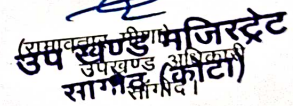 (रामावतार मीणा)
उप खण्ड मजिस्ट्रेट
उपखण्ड अधिकारी
सांगोद (कोटा)
सांगोद